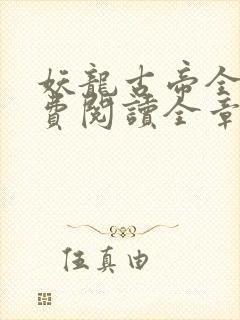 妖龍古帝全
費閱讀全章
伍真由